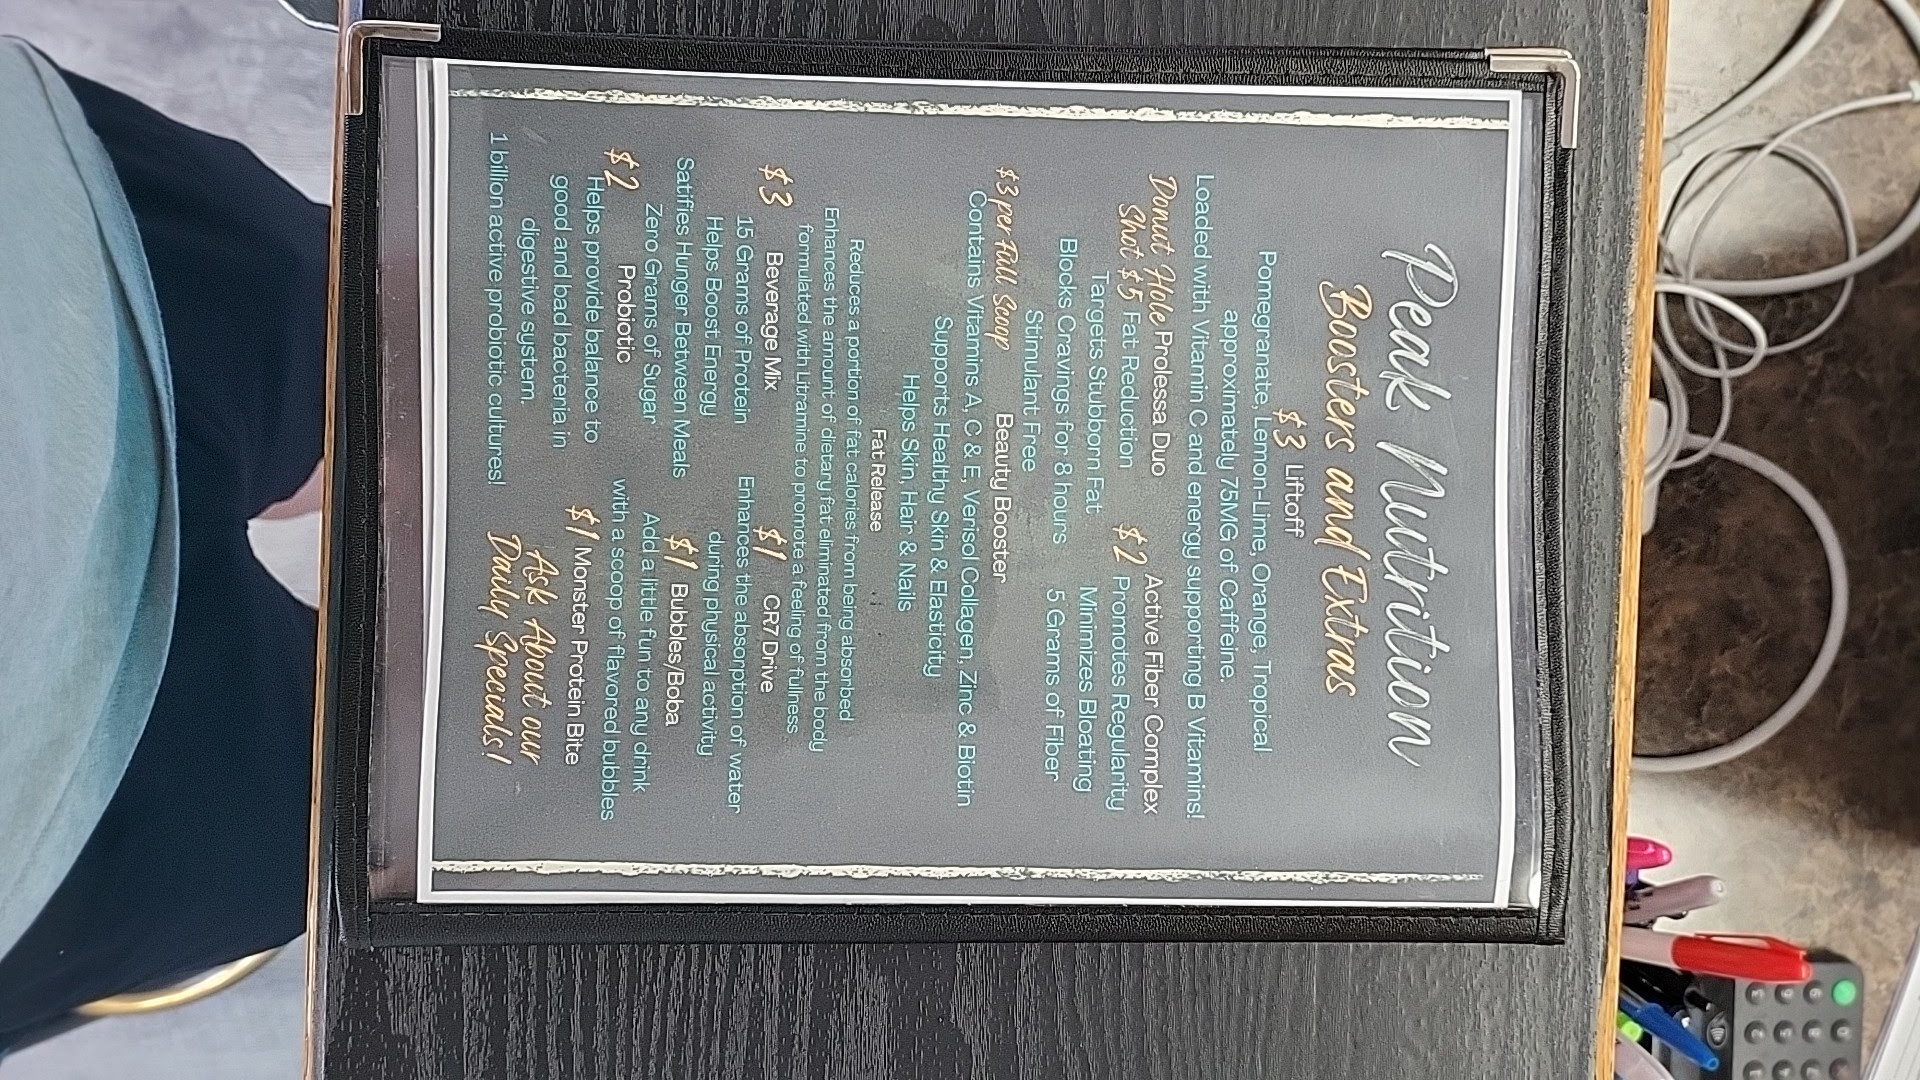 Peak Nutrition
Boosters and Extras
$3 Liftoff
Pomegranate, Lemon-Lime, Orange, Tropical
approximately 75MG of Caffeine.
Loaded with Vitamin C and energy supporting B Vitamins!
Donut Hole Prolessa Duo
Shot $5 Fat Reduction
Targets Stubborn Fat
Blocks Cravings for 8 hours
Stimulant Free
Active Fiber Complex
$2 Promotes Regularity
Minimizes Bloating
5 Grams of Fiber
$3 per Full Scoop Beauty Booster
Contains Vitamins A, C & E, Verisol Collagen, Zinc & Biotin
Supports Healthy Skin & Elasticity
Helps Skin, Hair & Nails
Fat Release
Reduces a portion of fat calories from being absorbed
Enhances the amount of dietary fat eliminated from the body
formulated with Litramine to promote a feeling of fullness
$3 Beverage Mix
15 Grams of Protein
Helps Boost Energy
Satifies Hunger Between Meals
Zero Grams of Sugar
$2 Probiotic
Helps provide balance to
good and bad bacteria in
digestive system.
1 billion active probiotic cultures!
$1 CR7 Drive
Enhances the absorption of water
during physical activity
$1 Bubbles/Boba
Add a little fun to any drink
with a scoop of flavored bubbles
$1 Monster Protein Bite
Ask About our
Daily Specials!